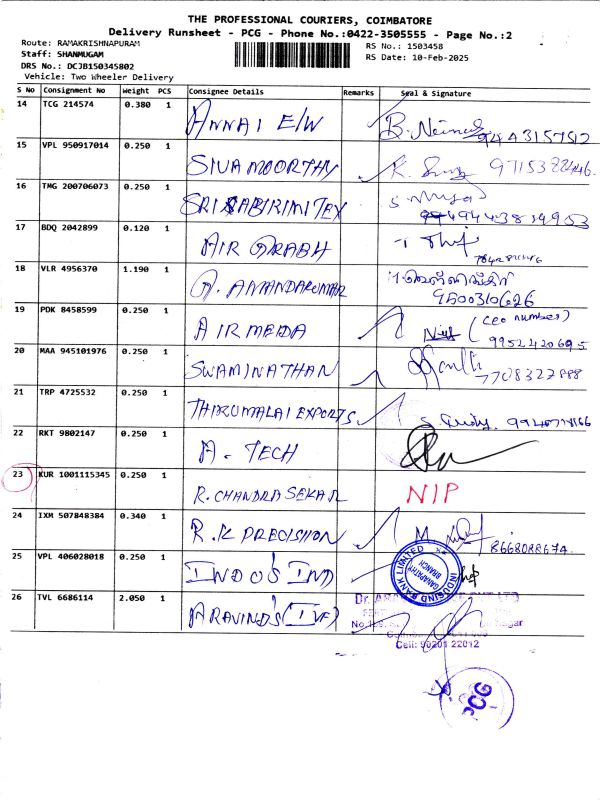 THE PROFESSIONAL COURIERS, COIMBATORE
Delivery Runsheet - PCG - Phone No.:0422-3505555 - Page No.:2
Route: RAMAKRISHNAPURAM
Staff: SHANMUGAM
DRS No.: DCJB150345802
Vehicle: Two Wheeler Delivery
RS No.: 1503458
RS Date: 10-Feb-2025
S No Consignment No Weight PCS Consignee Details Remarks Seal & Signature
14 TCG 214574 0.380 1 ANNAI E/W
15 VPL 950917014 0.250 1 SIVAMOORTHY
16 TMG 200706073 0.250 1
17 BDQ 2042899 0.120 1 AIR GRABH
18 VLR 4956370 1.190 1 A. ANANDAKUMAR 9500310626
19 PDK 8458599 0.250 1 AIRMEDA (CEO number) 9952420695
20 MAA 945101976 0.250 1 SWAMINATHAN 7708327888
21 TRP 4725532 0.250 1 THIRUMALAI EXPORTS
22 RKT 9802147 0.250 1 A. TECH
23 KUR 1001115345 0.250 1 R. CHANDRA SEKAR NIP
24 IXM 507848384 0.340 1 R.K PRECISION 8668088674
25 VPL 406028018 0.250 1 INDO'S IND
INDUSIND BANK LIMITED
GANAPATHY BRANCH
26 TVL 6686114 2.050 1 ARAVIND'S (IVF)
Cell: 90201 22012
PCG